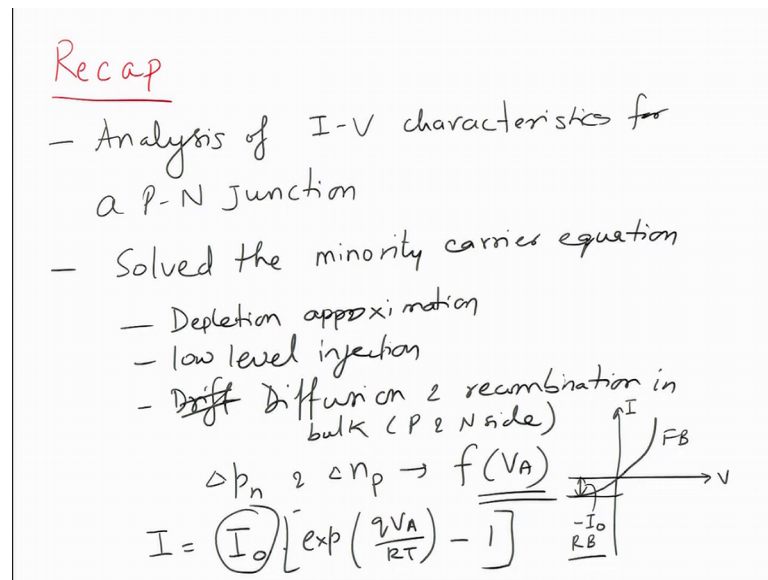 Recap
- Analysis of I-V characteristics for
a P-N Junction
- Solved the minority carrier equation
- Depletion approximation
- low level injection
- Drift Diffusion & recombination in
bulk (P & N side)
Δpn & Δnp → f(VA)
I
FB
V
-I0
RB
I = I0 [exp(qVA/kT) - 1]